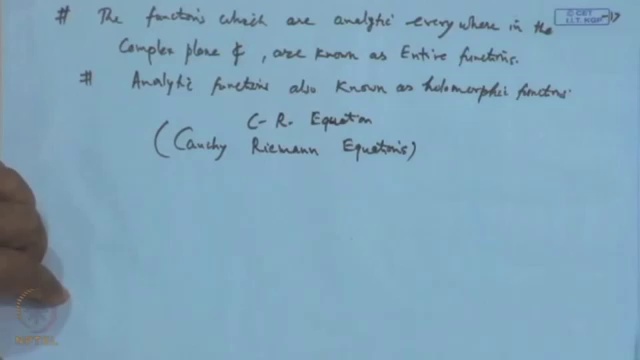 # The functions which are analytic everywhere in the
Complex plane ₵, are known as Entire functions.
# Analytic functions also known as holomorphic functions.
C-R. Equation
(Cauchy Riemann Equations)
© CET
I.I.T. KGP
NPTEL